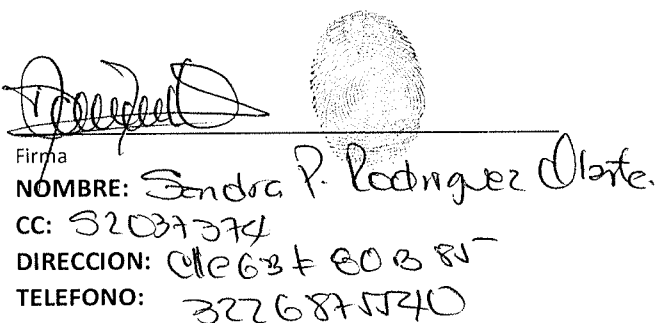 Firma
NOMBRE: Sandra P. Rodriguez Olarte.
CC: 52037374
DIRECCION: Clle 63F 80B 85
TELEFONO: 3226875540